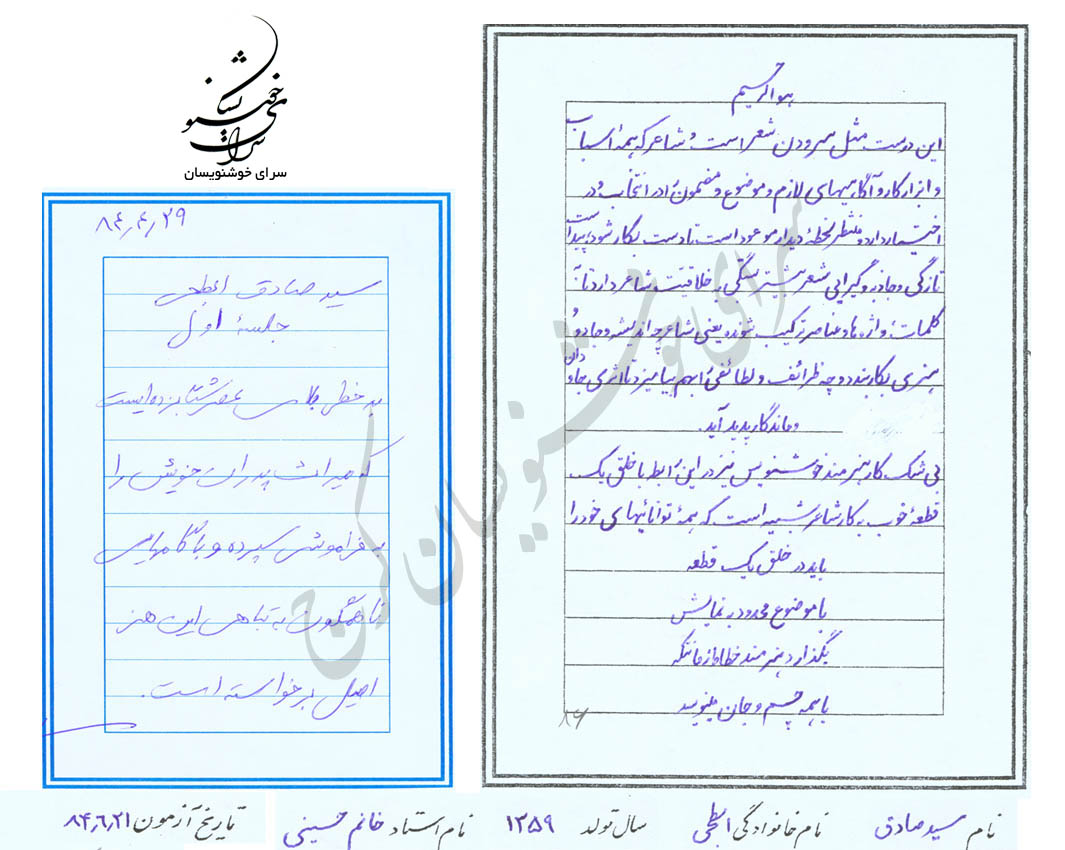 سرای خوشنویسان
سرای خوشنویسان
۸۴٫۴٫۲۹
سید صادق ابطحی
جلسهٔ اول
بد خطی بلای عصر شتابزده ایست
که میراث پدران خویش را
به فراموشی سپرده و با گامهایی
ناهمگون به تباهی این هنر
اصیل برخواسته است.
هوالرحیم
این درست مثل سرودن شعر است و شاعر که همهٔ اسباب
و ابزار کار و آگاهیهای لازم و موضوع و مضمون را در انتخاب و در
اختیار دارد و منتظر لحظهٔ دیدار موعود است تا دست بکار شود پیداست
تازگی و جاذبه و گیرایی شعر بیشتر بستگی به خلاقیت شاعر دارد تا به
کلمات و واژه ها و عناصر ترکیب شونده یعنی شاعر چه اندیشه و جادوُ
هنری بکار بندد و چه ظرائف و لطائفی را بهم بیامیزد تا اثری جاودان
و ماندگار پدید آید.
بی شک کار هنرمند خوشنویس نیز در این رابطه با خلق یک
قطعهٔ خوب به کار شاعر شبیه است که همهٔ توانائیهای خود را
باید در خلق یک قطعه
با موضوع محدود به نمایش
بگذارد هنرمند خطاط از مانکه
با همه جسم و جان مینویسد
۸۶
سرای خوشنویسان کرج
نام سید صادق نام خانوادگی ابطحی سال تولد ۱۳۵۹ نام استاد خانم حسینی تاریخ آزمون ۸۴٫۶٫۲۱